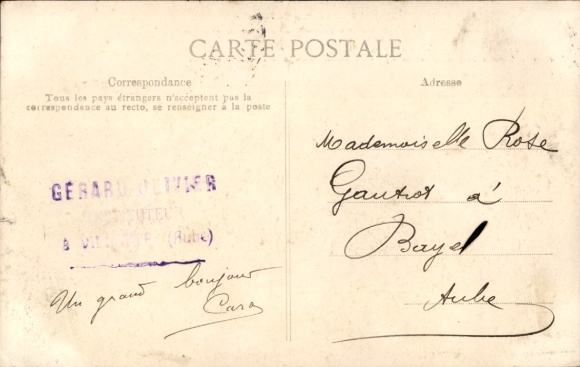 CARTE POSTALE
Correspondance
Tous les pays étrangers n'acceptent pas la
correspondance au recto, se renseigner à la poste
Adresse
GÉRARD OLIVIER
INSTITUTEUR
à (Aube)
Un grand bonjour
Mademoiselle Rose
à
Bayel
Aube